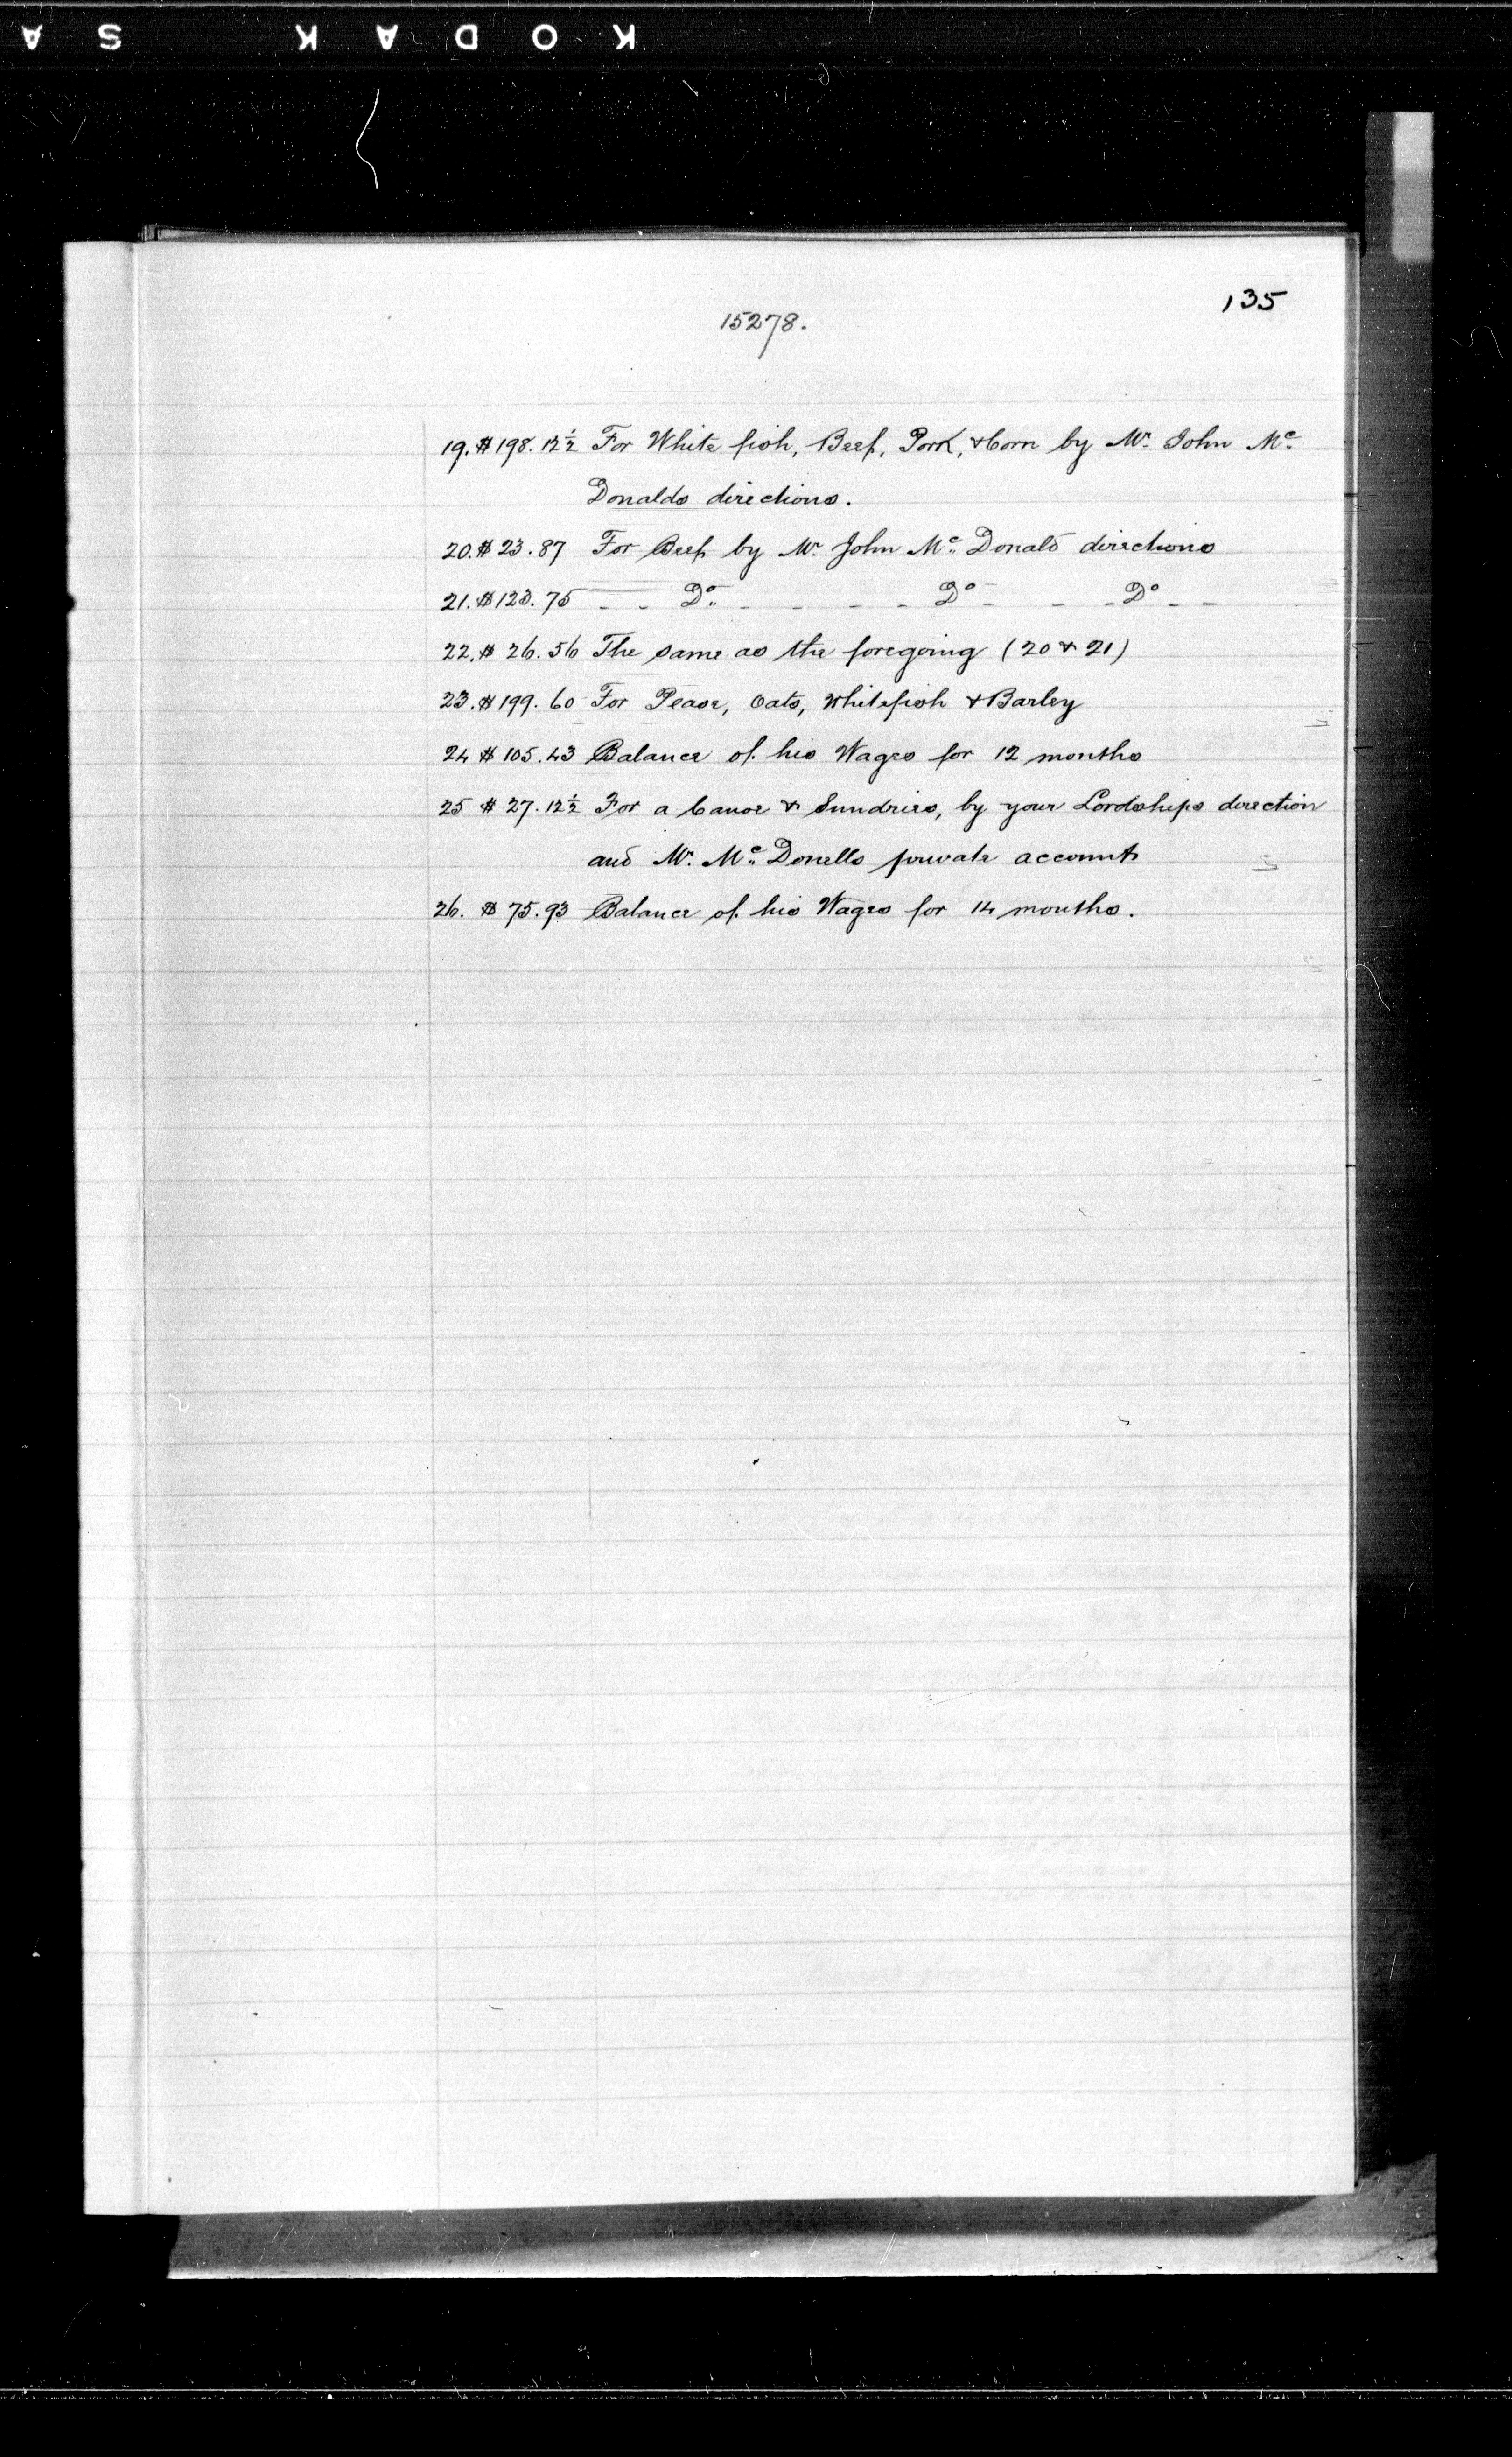 KODAK SA
135
15278.
19. $198.12½ For White fish, Beef, Pork, & Corn by Mr. John Mc
Donalds directions.
20. $23.87 For Beef by Mr. John Mc Donald directions
21. $123.75 - - Do - - - - Do - - - Do - -
22. $26.56 The same as the foregoing (20 & 21)
23. $199.60 For Pease, Oats, Whitefish & Barley
24 $105.43 Balance of his Wages for 12 months
25 $27.12½ For a Canoe & Sundries, by your Lordships direction
and Mr. Mc Donells private account
26. $75.93 Balance of his Wages for 14 months.